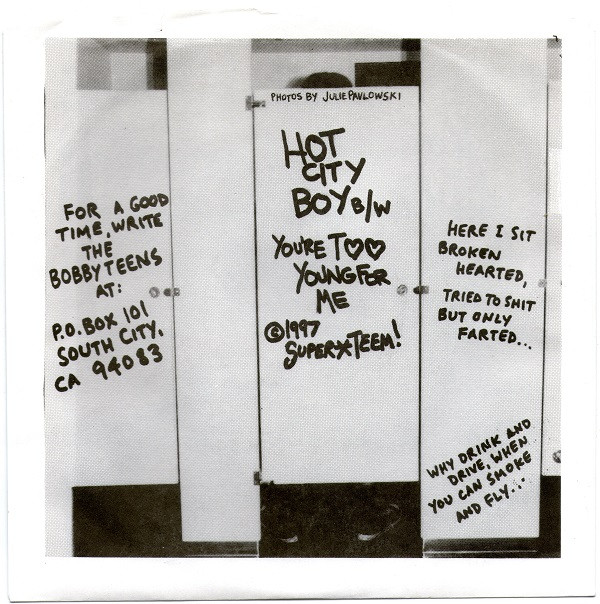 PHOTOS BY JULIE PAVLOWSKI
HOT
CITY
BOY B/W
YOU'RE T♡♡
YOUNG FOR
ME
©1997
SUPER★TEEM!
FOR A GOOD
TIME, WRITE
THE
BOBBYTEENS
AT:
P.O. BOX 101
SOUTH CITY,
CA 94083
HERE I SIT
BROKEN
HEARTED,
TRIED TO SHIT
BUT ONLY
FARTED...
WHY DRINK AND
DRIVE, WHEN
YOU CAN SMOKE
AND FLY...